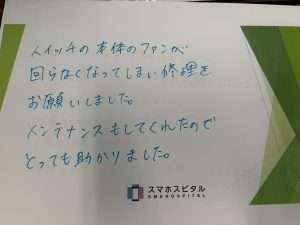 スイッチの本体のファンが
回らなくなってしまい修理を
お願いしました。
メンテナンスもしてくれたので
とっても助かりました。
スマホスピタル
SMAHOSPITAL